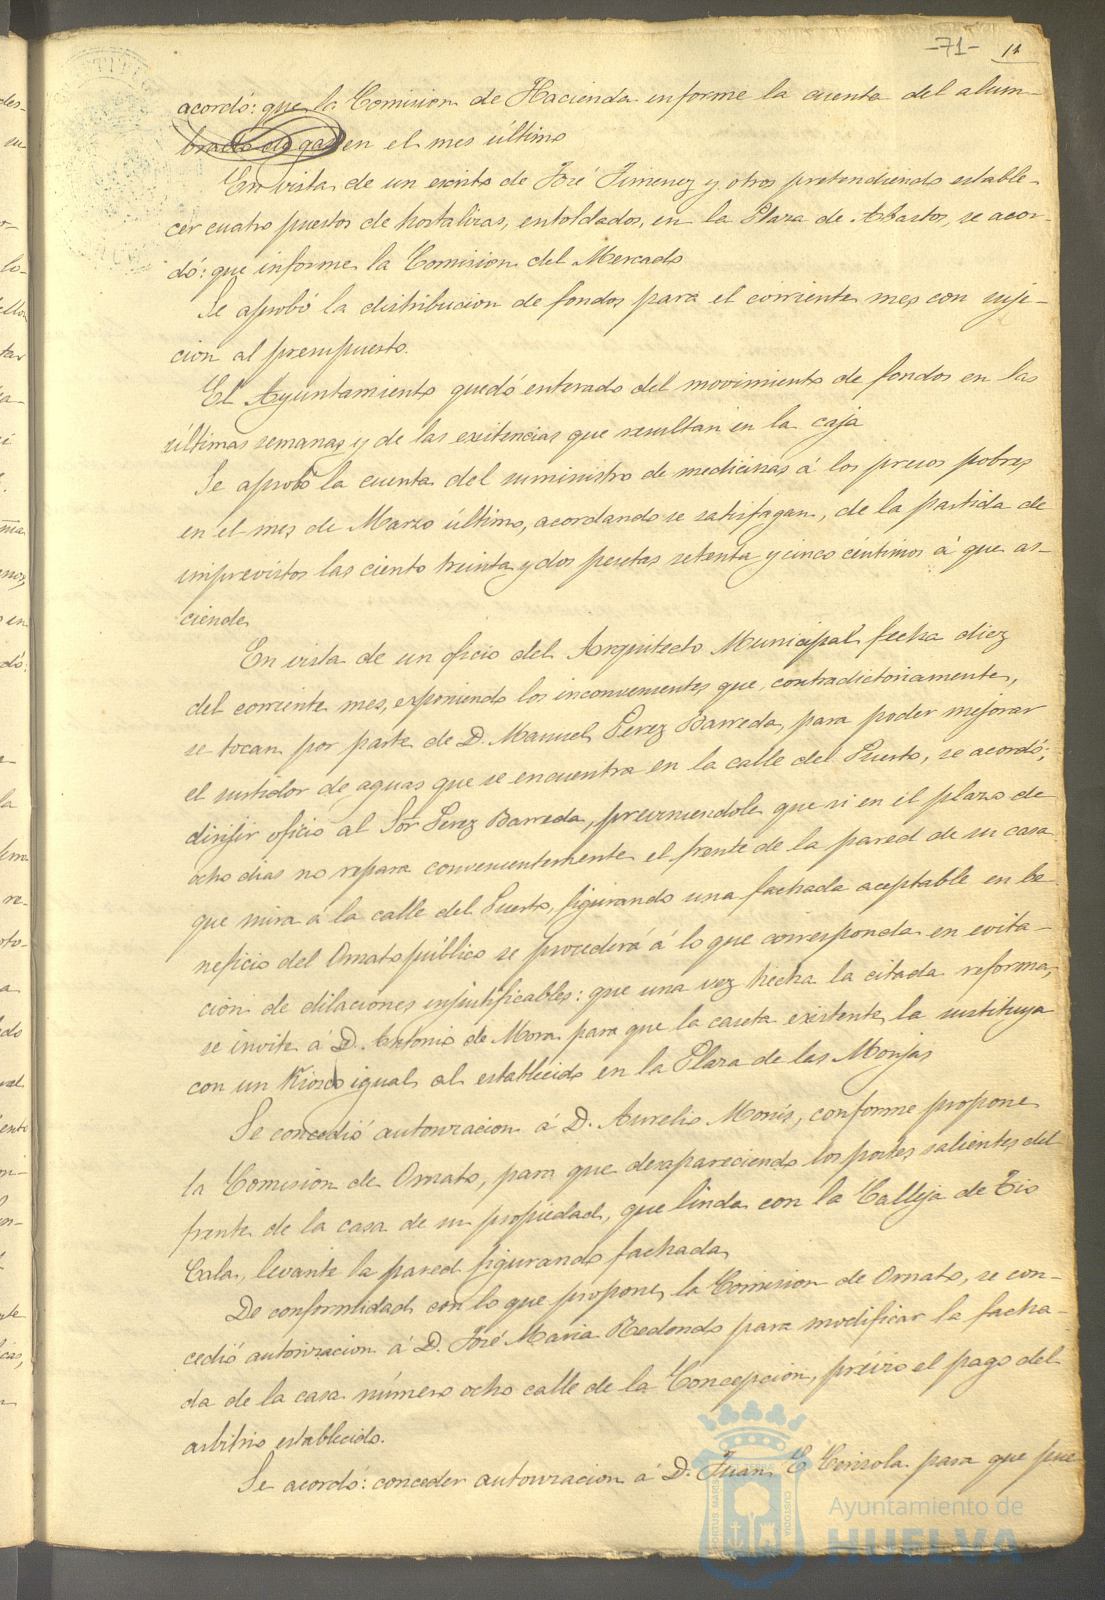 -71- 11
acordó: que la Comision de Hacienda informe la cuenta del alum-
brado de gas en el mes último
En vista de un escrito de José Jimenez y otros pretendiendo estable-
cer cuatro puestos de hortalizas, entoldados, en la Plaza de Abastos, se acor-
dó: que informe la Comision del Mercado
Se aprobó la distribucion de fondos para el corriente mes con suje-
cion al presupuesto.
El Ayuntamiento quedó enterado del movimiento de fondos en las
últimas semanas y de las existencias que resultan en la caja
Se aprobó la cuenta del suministro de medicinas á los presos pobres
en el mes de Marzo último, acordando se satisfagan, de la partida de
imprevistos las ciento treinta y dos pesetas setenta y cinco céntimos á que as-
ciende
En vista de un oficio del Arquitecto Municipal fecha diez
del corriente mes, exponiendo los inconvenientes que, contradictoriamente,
se tocan por parte de D. Manuel Perez Barreda, para poder mejorar
el surtidor de aguas que se encuentra en la calle del Puerto, se acordó:
dirijir oficio al Sor Perez Barreda, previniendole que si en el plazo de
ocho dias no repara convenientemente el frente de la pared de su casa
que mira á la calle del Puerto, figurando una fachada aceptable en be-
neficio del Ornato público se procederá á lo que corresponda en evita-
ción de dilaciones injustificables: que una vez hecha la citada reforma,
se invite á D. Antonio de Mora para que la caseta existente, la sustituya
con un Kiosco igual al establecido en la Plaza de las Monjas
Se concedió autorizacion á D. Aurelio Monís, conforme propone
la Comisión de Ornato, para que desapareciendo los postes salientes del
frente de la casa de su propiedad, que linda con la Calleja de Tio
Cala, levante la pared figurando fachada
De conformidad con lo que propone la Comision de Ornato, se con-
cedió autorizacion á D. José Maria Redondo para modificar la facha-
da de la casa número ocho calle de la Concepcion, prévio el pago del
arbitrio establecido.
Se acordó: conceder autorizacion á D. Juan E Cerisola para que pue
Ayuntamiento de
HUELVA
PORTUS MARIS
CUSTODIA